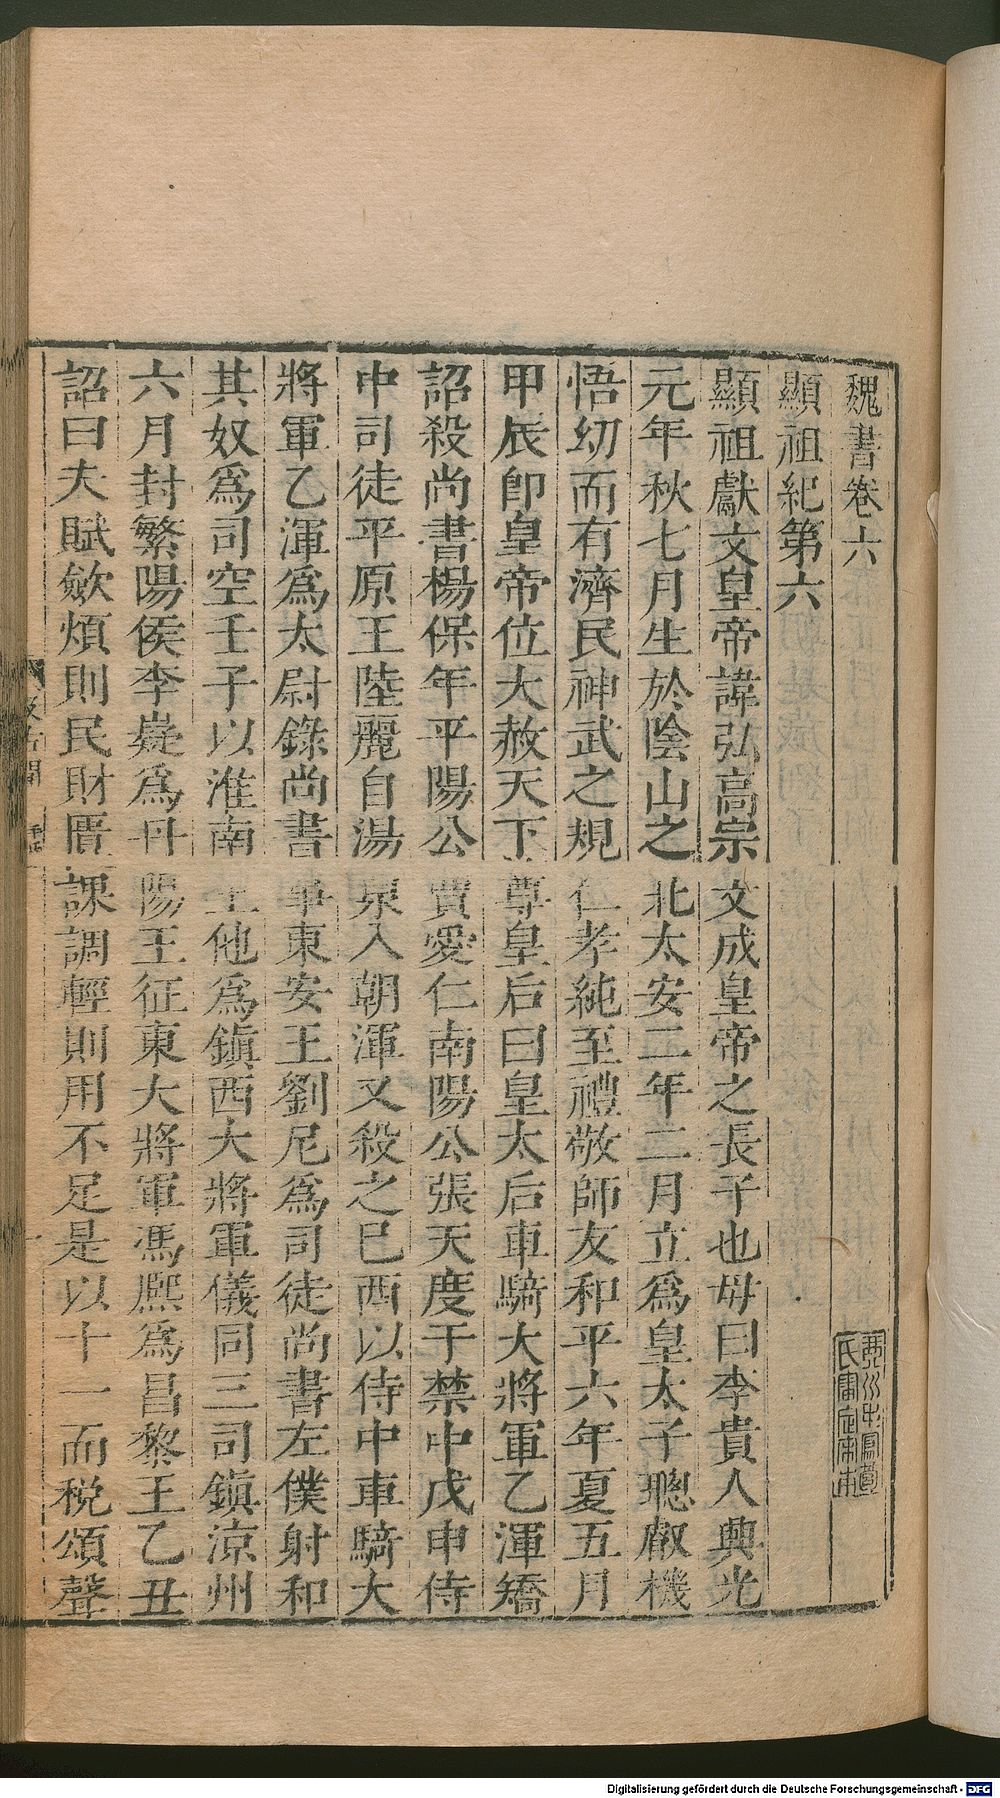 魏書卷六
顯祖紀第六
顯祖獻文皇帝諱弘高宗文成皇帝之長子也母曰李貴人興光
元年秋七月生於陰山之北太安二年二月立爲皇太子聰叡機
悟幼而有濟民神武之規仁孝純至禮敬師友和平六年夏五月
甲辰卽皇帝位大赦天下尊皇后曰皇太后車騎大將軍乙渾矯
詔殺尚書楊保年平陽公賈愛仁南陽公張天度于禁中戊申侍
中司徒平原王陸麗自湯泉入朝渾又殺之巳酉以侍中車騎大
將軍乙渾爲太尉錄尚書事東安王劉尼爲司徒尚書左僕射和
其奴爲司空壬子以淮南王他爲鎭西大將軍儀同三司鎭涼州
六月封繁陽侯李嶷爲丹陽王征東大將軍馮熙爲昌黎王乙丑
詔曰夫賦斂煩則民財匱課調輕則用不足是以十一而稅頌聲
氏審定宋本
Digitalisierung gefördert durch die Deutsche Forschungsgemeinschaft - DFG